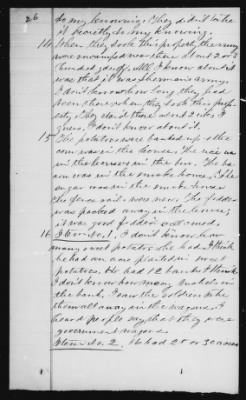 26
to my knowing. They didn't take
it secretly to my knowing.
14 When they took this property the army
was encamped near there about 2 or 3
hundred yards off. All I know about it
was that it was Sherman's army.
I don't know how long they had
been there when they took this prop-
erty. They staid there about 2 wks. I
guess. I don't know about it.
15 The potatoes were banked up & the
corn was in the house. The rice was
in the house in the barn. The ba-
con was in the smoke house, & the
sugar was in the smoke house
The fence rails were new. The fodder
was packed away in the house,
it was good fodder well cured.
16 Item No. 1. I don't know how
many sweet potatoes she had. I think
he had an acre planted in sweet
potatoes. He had 12 banks I think.
I don't know how many bushels in
the bank. I saw the soldiers take
them all away in the wagons. I
heard people say that they were
government wagons.
Item No. 2. He had 25 or 30 acres